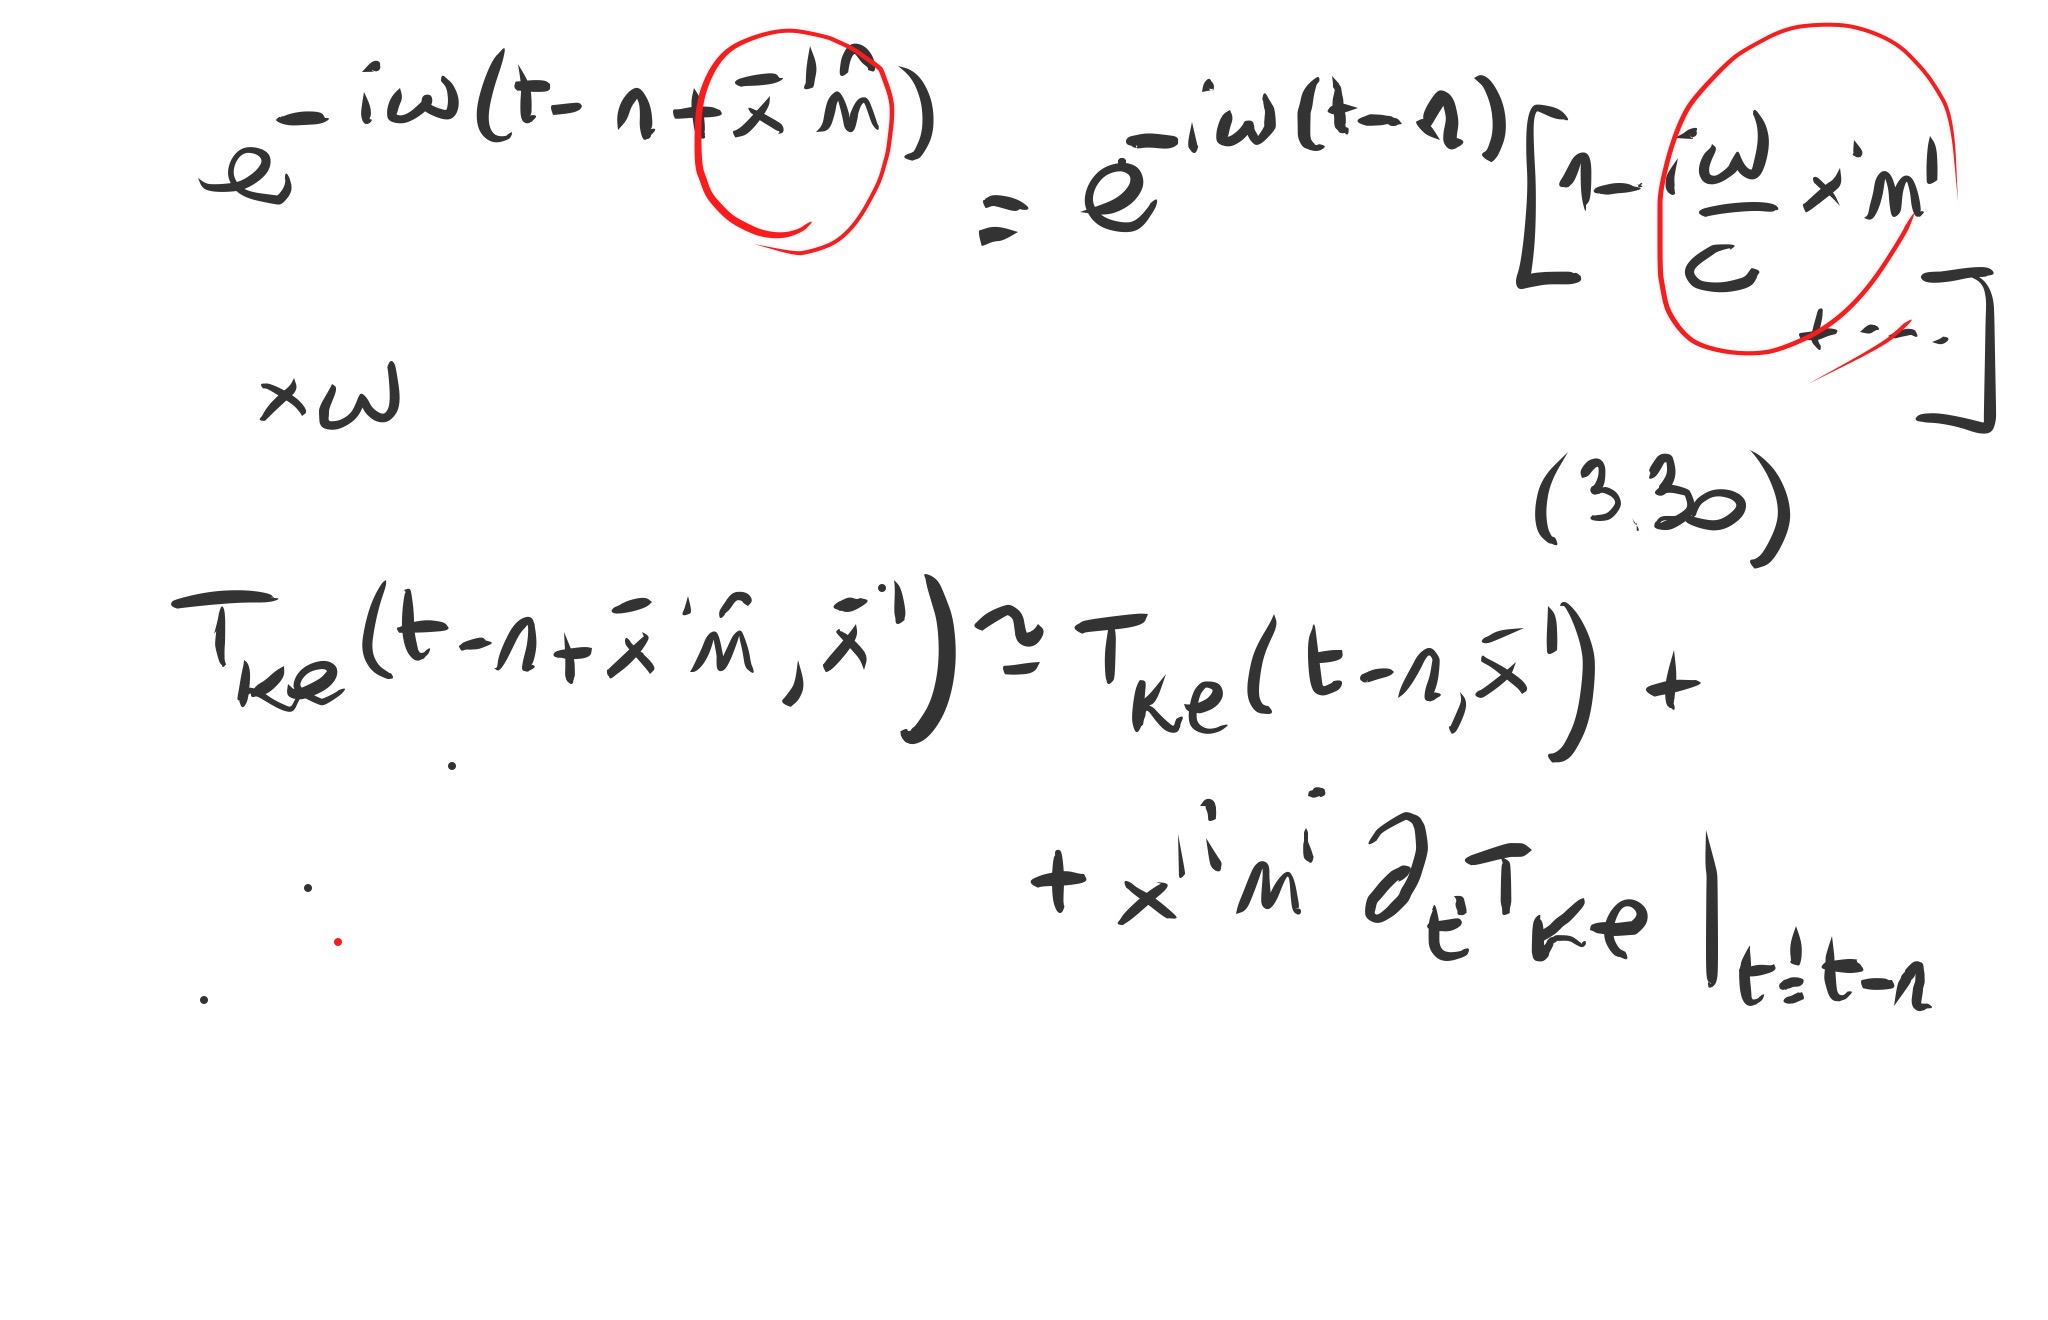 e^{-iω(t-r+x̄'n̂)} = e^{-iω(t-r)} [1 - iω/c x^i n^i
+ ... ]
xω
(3.30)
T_{kl}(t-r+x̄'n̂, x̄') ≃ T_{kl}(t-r, x̄') +
+ x'^i n^i ∂_{t'} T_{kl} |_{t'=t-r}